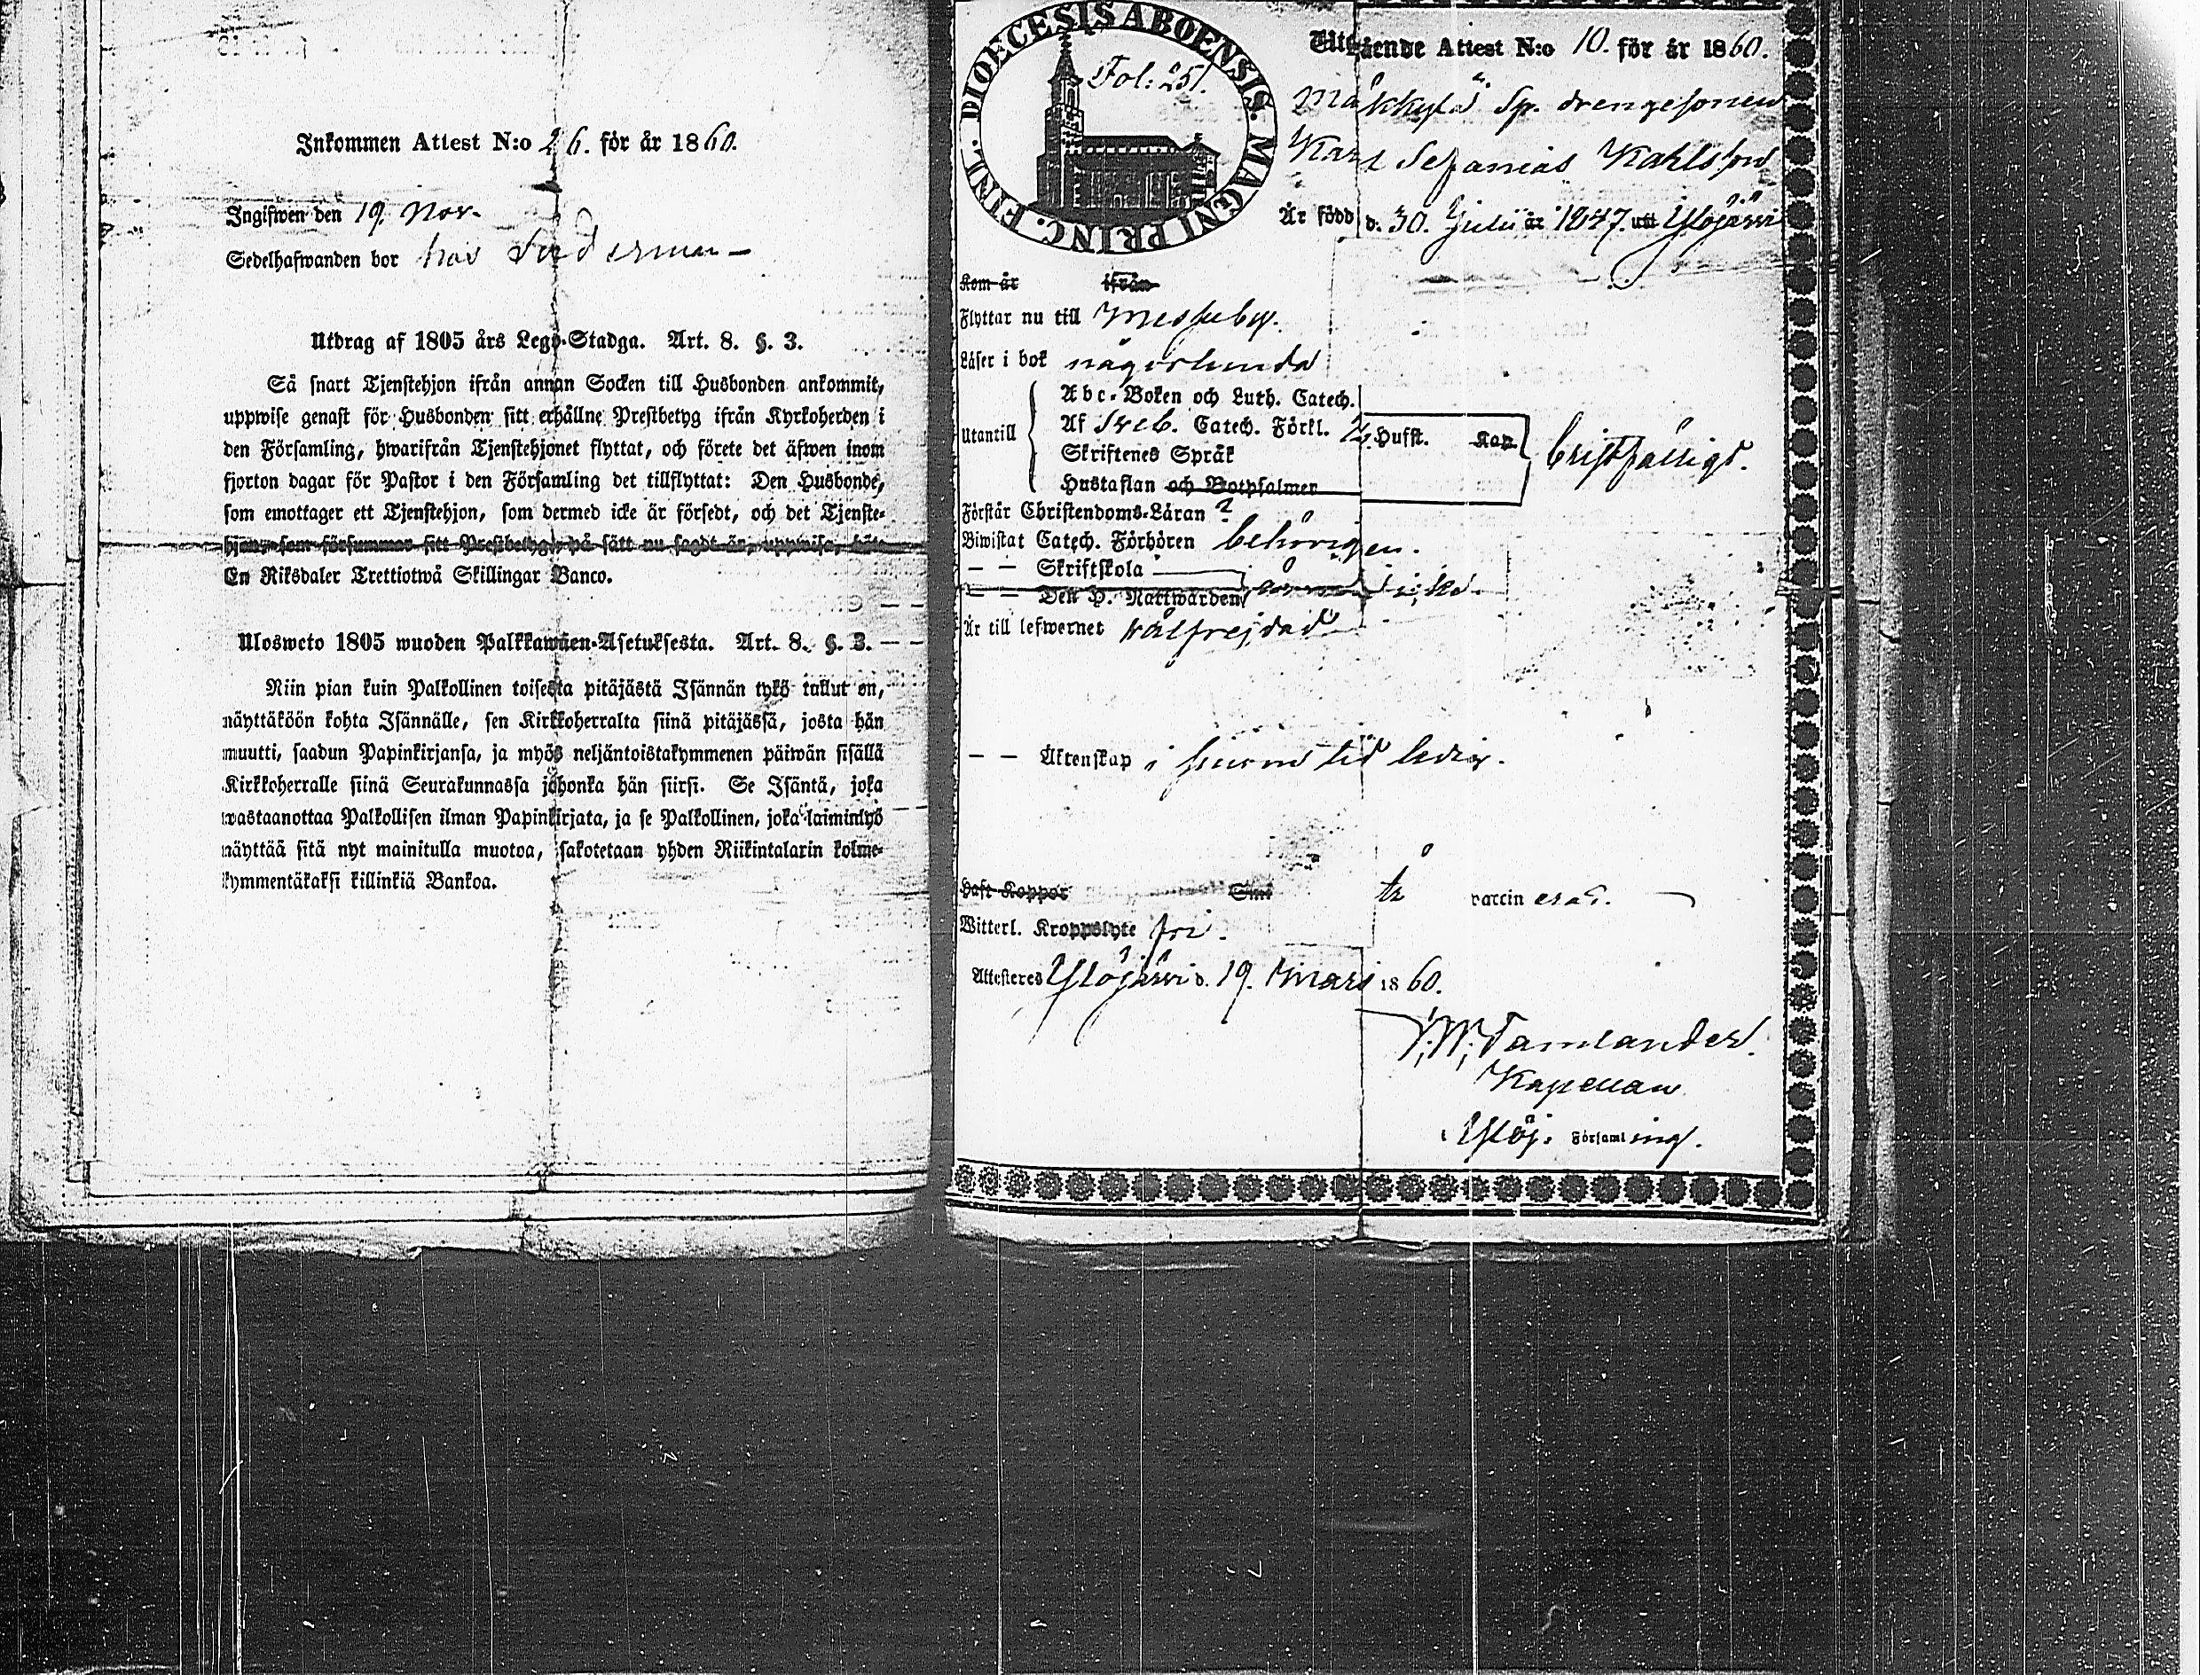 Inkommen Attest N:o 26. för år 1860.
Ingifwen den 19 Nov.
Sedelhafwanden bor hos Söderman
Utdrag af 1805 års Lego-Stadga. Art. 8. §. 3.
Så snart Tjenstehjon ifrån annan Socken till Husbonden ankommit,
uppwise genast för Husbonden sitt erhållne Prestbetyg ifrån Kyrkoherden i
den Församling, hwarifrån Tjenstehjonet flyttat, och förete det äfwen inom
fjorton dagar för Pastor i den Församling det tillflyttat: Den Husbonde,
som emottager ett Tjenstehjon, som dermed icke är försedt, och det Tjenste-
hjon, som försummar sitt Prestbetyg, på sätt nu sagdt är, uppwisa, böte
En Riksdaler Trettiotwå Skillingar Banco.
Ulosweto 1805 wuoden Palkkawäen-Asetuksesta. Art. 8. §. 3.
Niin pian kuin Palkollinen toisesta pitäjästä Isännän tykö tullut on,
näyttäköön kohta Isännälle, sen Kirkkoherralta siinä pitäjässä, josta hän
muutti, saadun Papinkirjansa, ja myös neljäntoistakymmenen päiwän sisällä
Kirkkoherralle siinä Seurakunnassa johonka hän siirsi. Se Isäntä, joka
wastaanottaa Palkollisen ilman Papinkirjata, ja se Palkollinen, joka laiminlyö
näyttää sitä nyt mainitulla muotoa, sakotetaan yhden Riikintalarin kolme-
kymmentäkaksi killinkiä Bankoa.
DIOECESIS ABOENSIS. MAGNI PRINC. FINL.
Fol: 251.
Utgående Attest N:o 10. för år 1860.
Mäkkylä Sp. drengesonen
Karl Sefanias Karlsson
Är född d. 30. Julii år 1847. uti Ylöjärvi
Kom år ifrån
Flyttar nu till Messuby.
Läser i bok någorlunda
Utantill
Abc-Boken och Luth. Catech.
Af Sveb. Catech. Förkl. Hufst. Kap.
Skriftenes Språk
Hustaflan och Botpsalmer
bristfälligt.
Förstår Christendoms-Läran ?
Biwistat Catech. Förhören behörigen.
— — Skriftskola
— — Den H. Nattwarden ännu icke.
Är till lefwernet wälfrejdad
— — Äktenskap i sinom tid ledig.
Haft Koppor Smi är vaccinerad.
Witterl. Kroppslyte fri.
Attesteres Ylöjärvi d. 19. Mars 1860.
Tamlander.
Kapellan
i Ylöj. Församling.